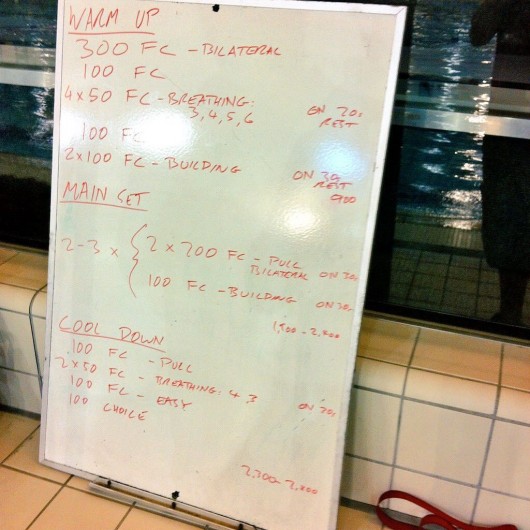 WARM UP
300 FC - BILATERAL
100 FC
4x50 FC - BREATHING: ON 20s
3, 4, 5, 6 REST
100 FC
2x100 FC - BUILDING ON 30s
REST
900
MAIN SET
2-3 x { 2 x 200 FC - PULL
BILATERAL ON 30s
100 FC - BUILDING ON 30s
1,900 - 2,400
COOL DOWN
100 FC - PULL
2x50 FC - BREATHING: 4 3 ON 20s
100 FC - EASY
100 CHOICE
2,300 - 2,800